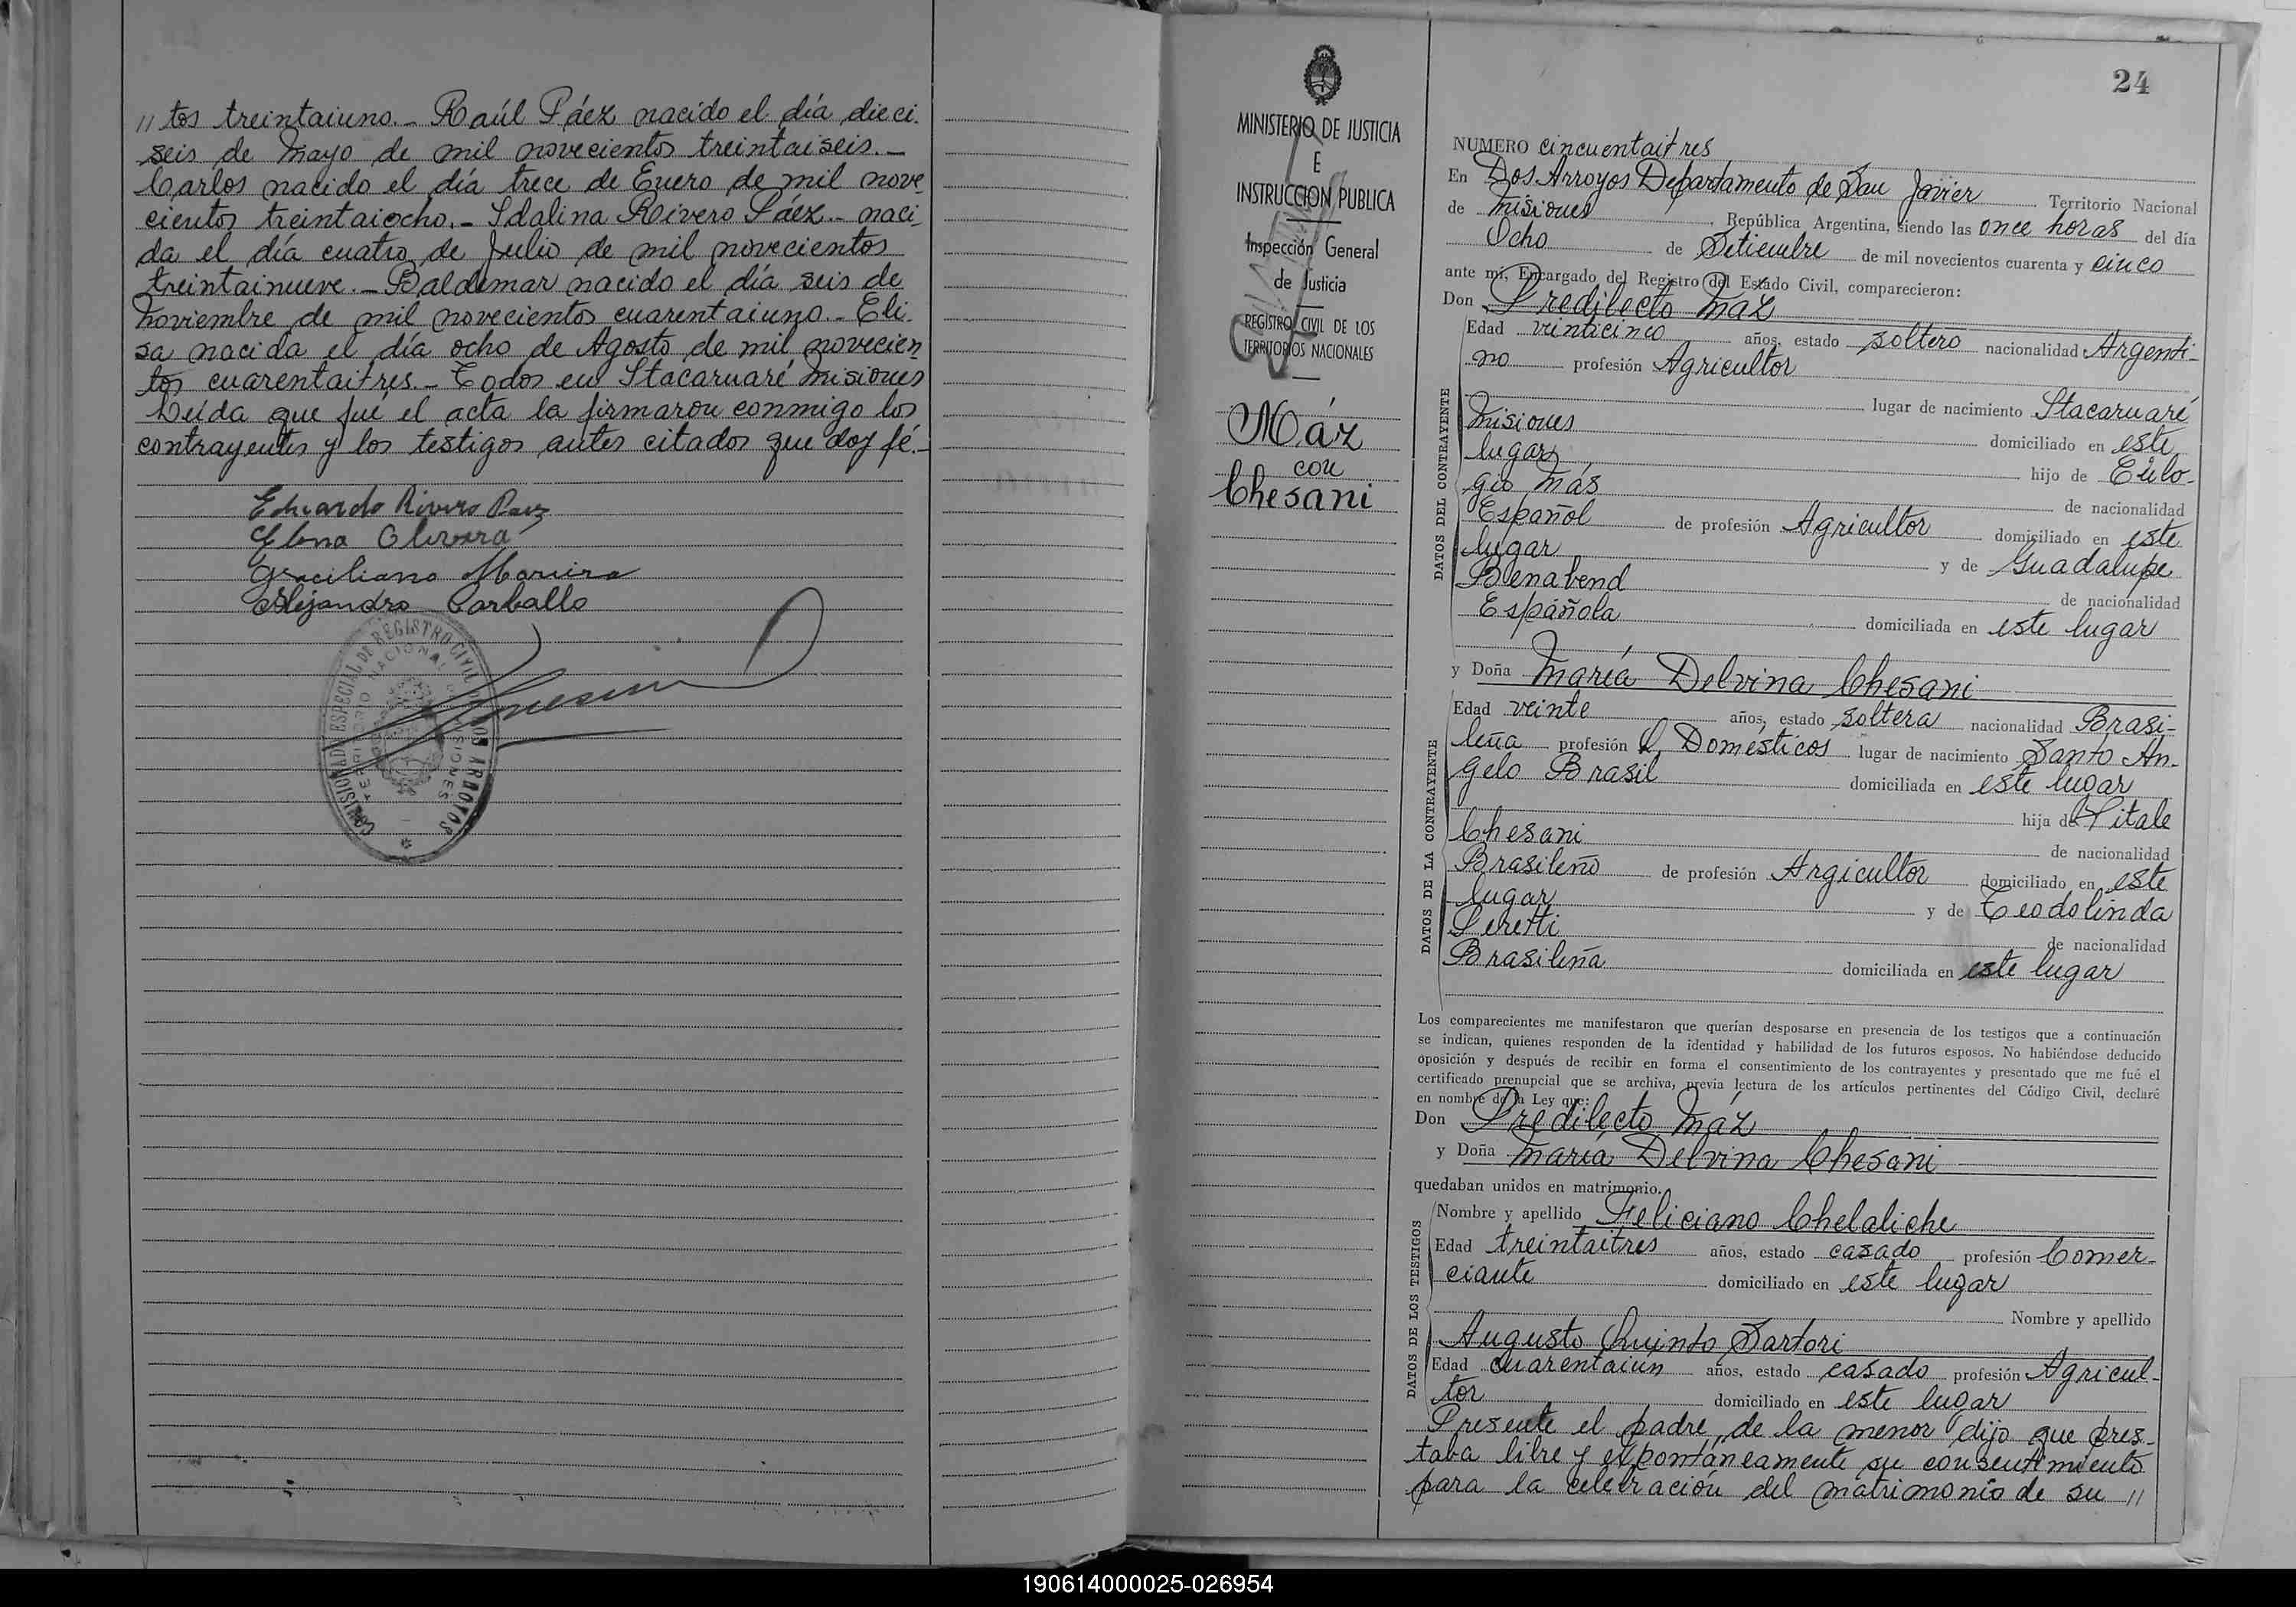 // tos treintaiuno._ Raúl Páez nacido el día dieci.
seis de Mayo de mil novecientos treintaiseis._
Carlos nacido el día trece de Enero de mil nove
cientos treintaiocho._ Idalina Rivero Páez_ naci-
da el día cuatro de Julio de mil novecientos
treintainueve._ Baldemar nacido el día seis de
Noviembre de mil novecientos cuarentaiuno._ Eli.
sa nacida el día ocho de Agosto de mil novecien
tos cuarentaitres._ Todos en Itacaruaré Misiones
Leída que fué el acta la firmaron conmigo los
contrayentes y los testigos antes citados que doy fé._
Eduardo Rivero Paez
Elena Olivera
Graciliano Moreira
Alejandro Carballo
COMISIONADO ESPECIAL DE REGISTRO CIVIL DOS ARROYOS
TERRITORIO NACIONAL MISIONES
MINISTERIO DE JUSTICIA
E
INSTRUCCION PUBLICA
Inspección General
de Justicia
REGISTRO CIVIL DE LOS
TERRITORIOS NACIONALES
Máz
con
Chesani
24
NUMERO cincuentaitres
En Dos Arroyos Departamento de San Javier Territorio Nacional
de Misiones, República Argentina, siendo las once horas del día
Ocho de Setiembre de mil novecientos cuarenta y cinco
ante mí, Encargado del Registro del Estado Civil, comparecieron:
Don Predilecto Máz
Edad veinticinco años, estado soltero nacionalidad Argenti-
no profesión Agricultor
lugar de nacimiento Itacaruaré
Misiones domiciliado en este
lugar hijo de Eulo-
gio Más de nacionalidad
Español de profesión Agricultor domiciliado en este
lugar y de Guadalupe
Benabend de nacionalidad
Española domiciliada en este lugar
DATOS DEL CONTRAYENTE
y Doña María Delvina Chesani
Edad veinte años, estado soltera nacionalidad Brasi-
leña profesión Q. Domésticos lugar de nacimiento Santo An-
gelo Brasil domiciliada en este lugar
hija de Vitale
Chesani de nacionalidad
Brasileño de profesión Argicultor domiciliado en este
lugar y de Teodolinda
Peretti de nacionalidad
Brasileña domiciliada en este lugar
DATOS DE LA CONTRAYENTE
Los comparecientes me manifestaron que querían desposarse en presencia de los testigos que a continuación
se indican, quienes responden de la identidad y habilidad de los futuros esposos. No habiéndose deducido
oposición y después de recibir en forma el consentimiento de los contrayentes y presentado que me fué el
certificado prenupcial que se archiva, previa lectura de los artículos pertinentes del Código Civil, declaré
en nombre de la Ley que:
Don Predilecto Máz
y Doña María Delvina Chesani
quedaban unidos en matrimonio.
Nombre y apellido Feliciano Chelaliche
Edad treintaitres años, estado casado profesión Comer-
ciante domiciliado en este lugar
Nombre y apellido
Augusto Quinto Sartori
Edad cuarentaiún años, estado casado profesión Agricul-
tor domiciliado en este lugar
DATOS DE LOS TESTIGOS
Presente el padre, de la menor dijo que pres-
taba libre y expontáneamente su consentimiento
para la celebración del matrimonio de su //
190614000025-026954